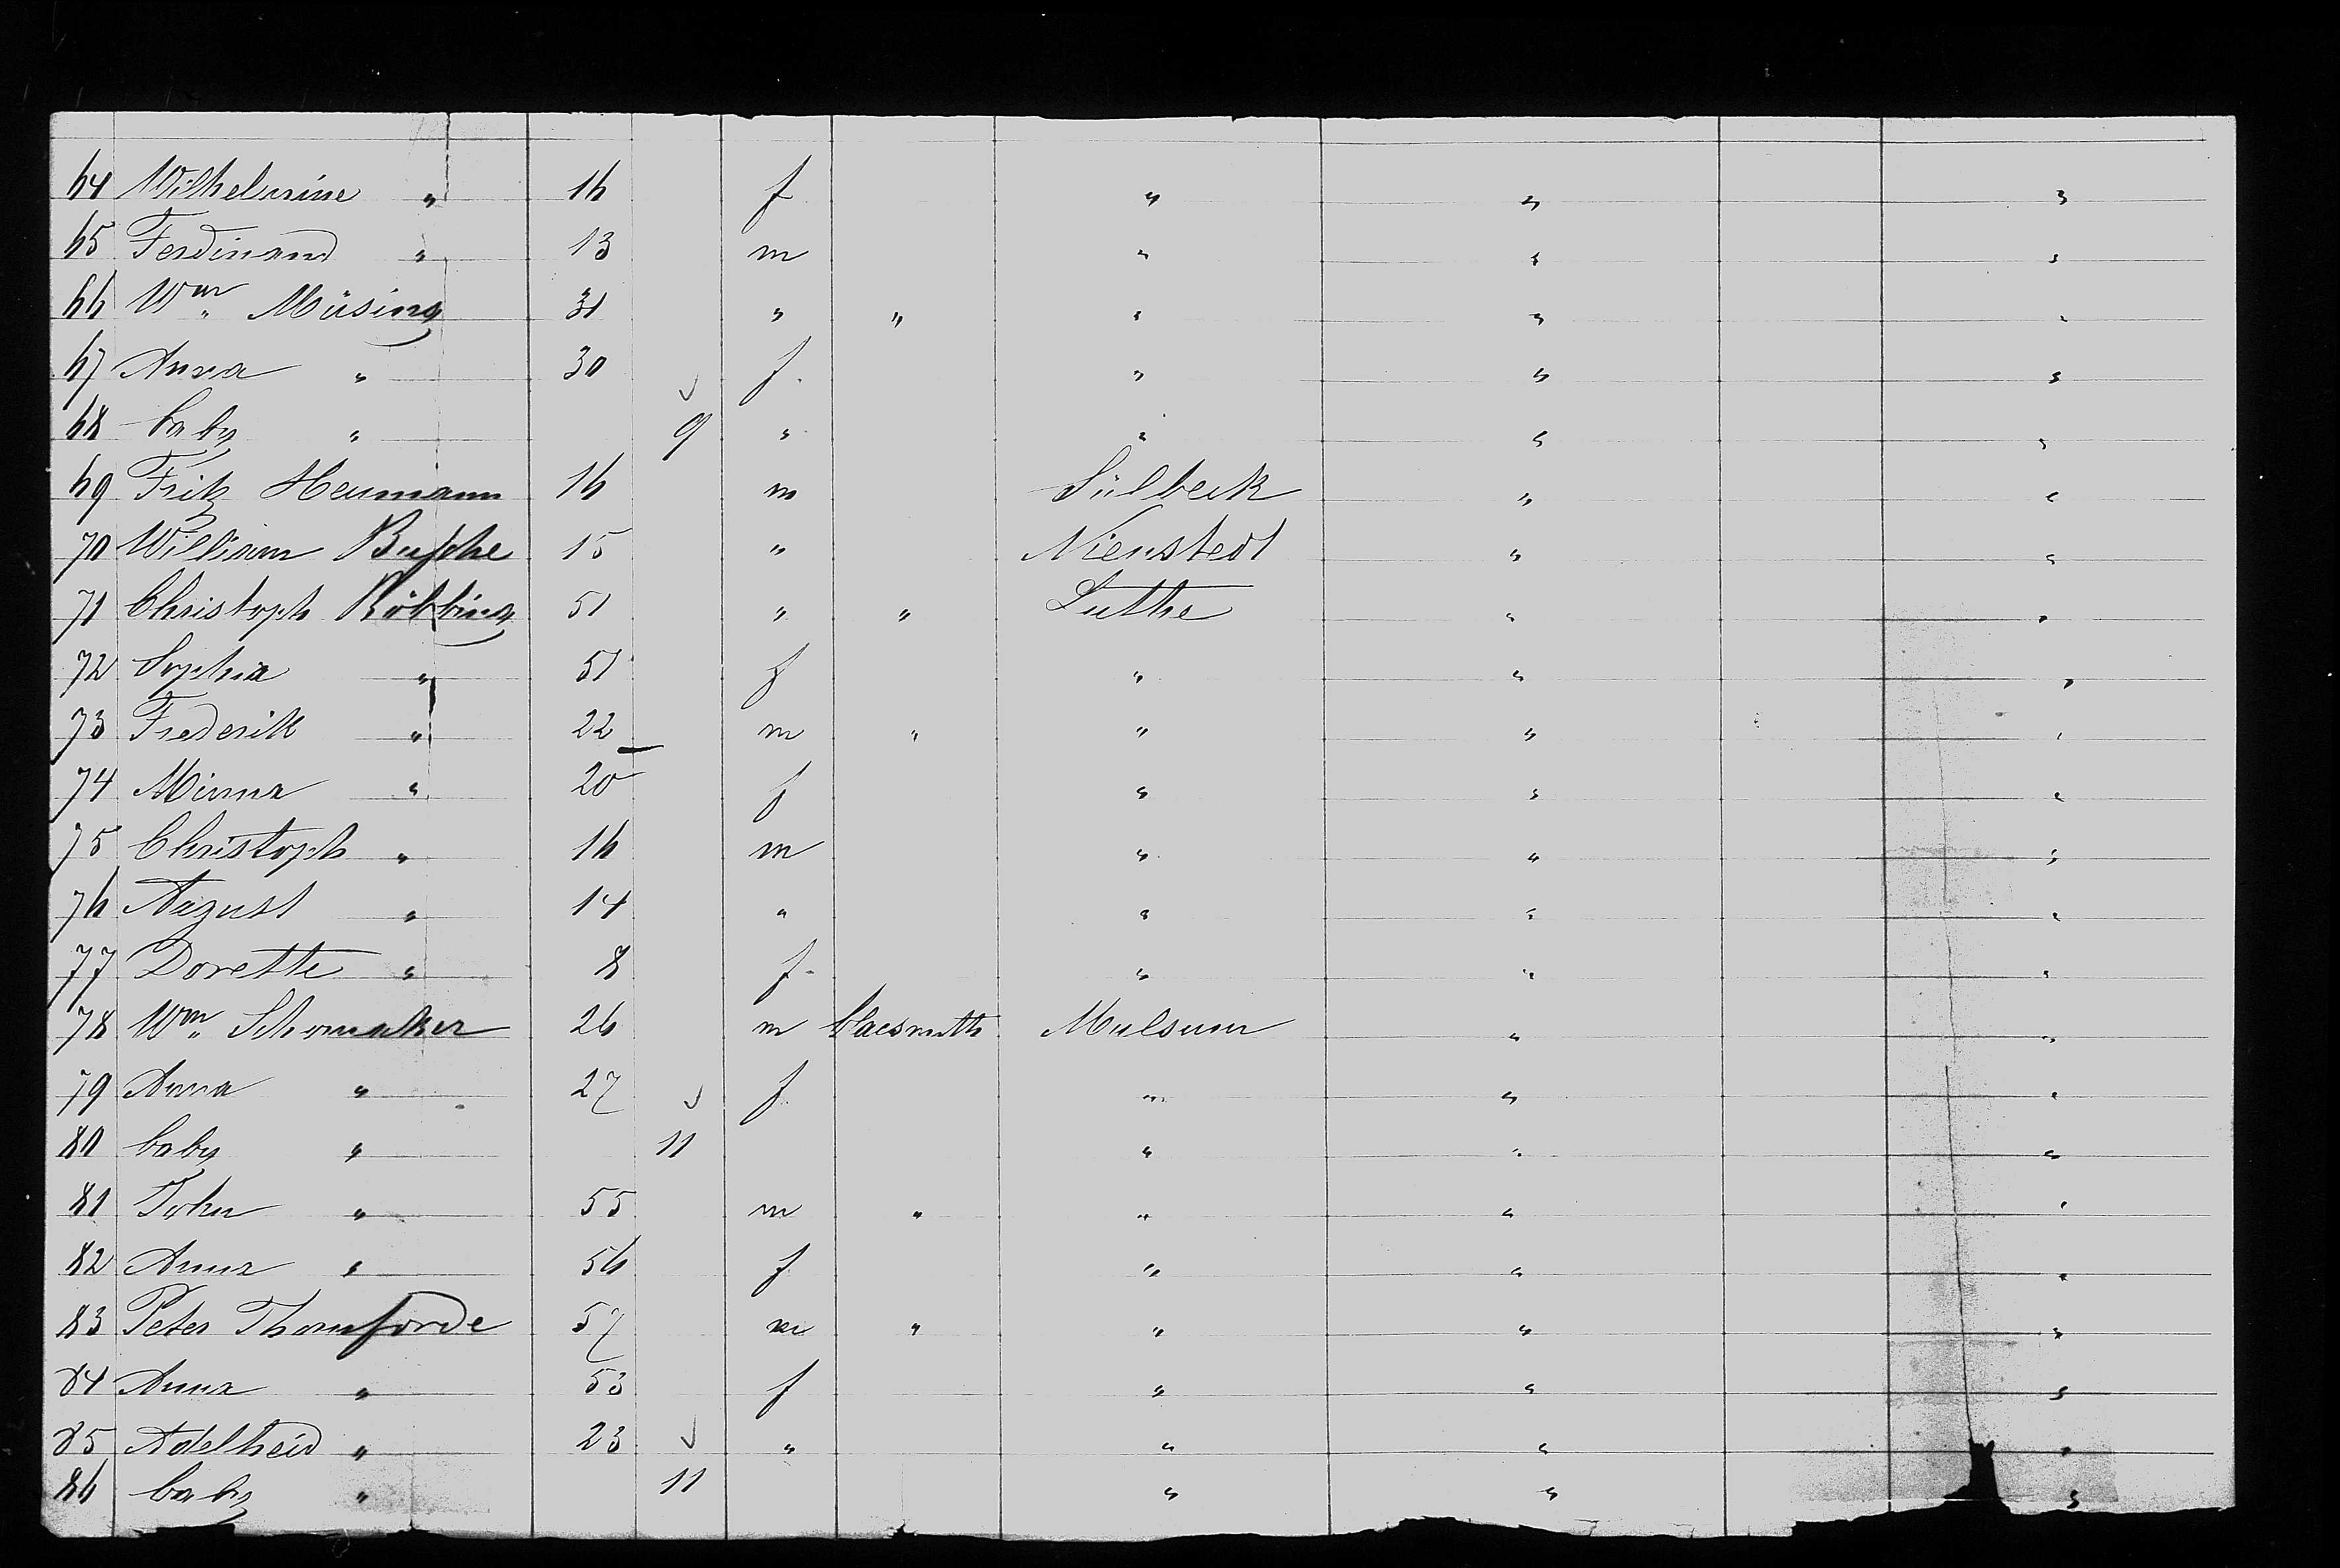 64 Wilhelmine " 16 f " " "
65 Ferdinand " 13 m " " "
66 Wm. Müsing 31 " " " " "
67 Anna " 30 f. " " "
68 baby " 9 " " " "
69 Fritz Heumann 16 m Sülbeck " "
70 William Busche 15 " Nienstedt " "
71 Christoph Röbbing 51 " " Luthe " "
72 Sophia " 51 f " " "
73 Frederik " 22 m " " " "
74 Minna " 20 f " " "
75 Christoph " 16 m " " "
76 August " 14 " " " "
77 Dorette " 8 f " " "
78 Wm. Schomaker 26 m blacsmith Mulsum " "
79 Anna " 27 f " " "
80 baby " 11 " " "
81 John " 55 m " " " "
82 Anna " 56 f " " "
83 Peter Thomforde 57 m " " " "
84 Anna " 53 f " " "
85 Adelheid " 23 " " " "
86 baby " 11 " " "